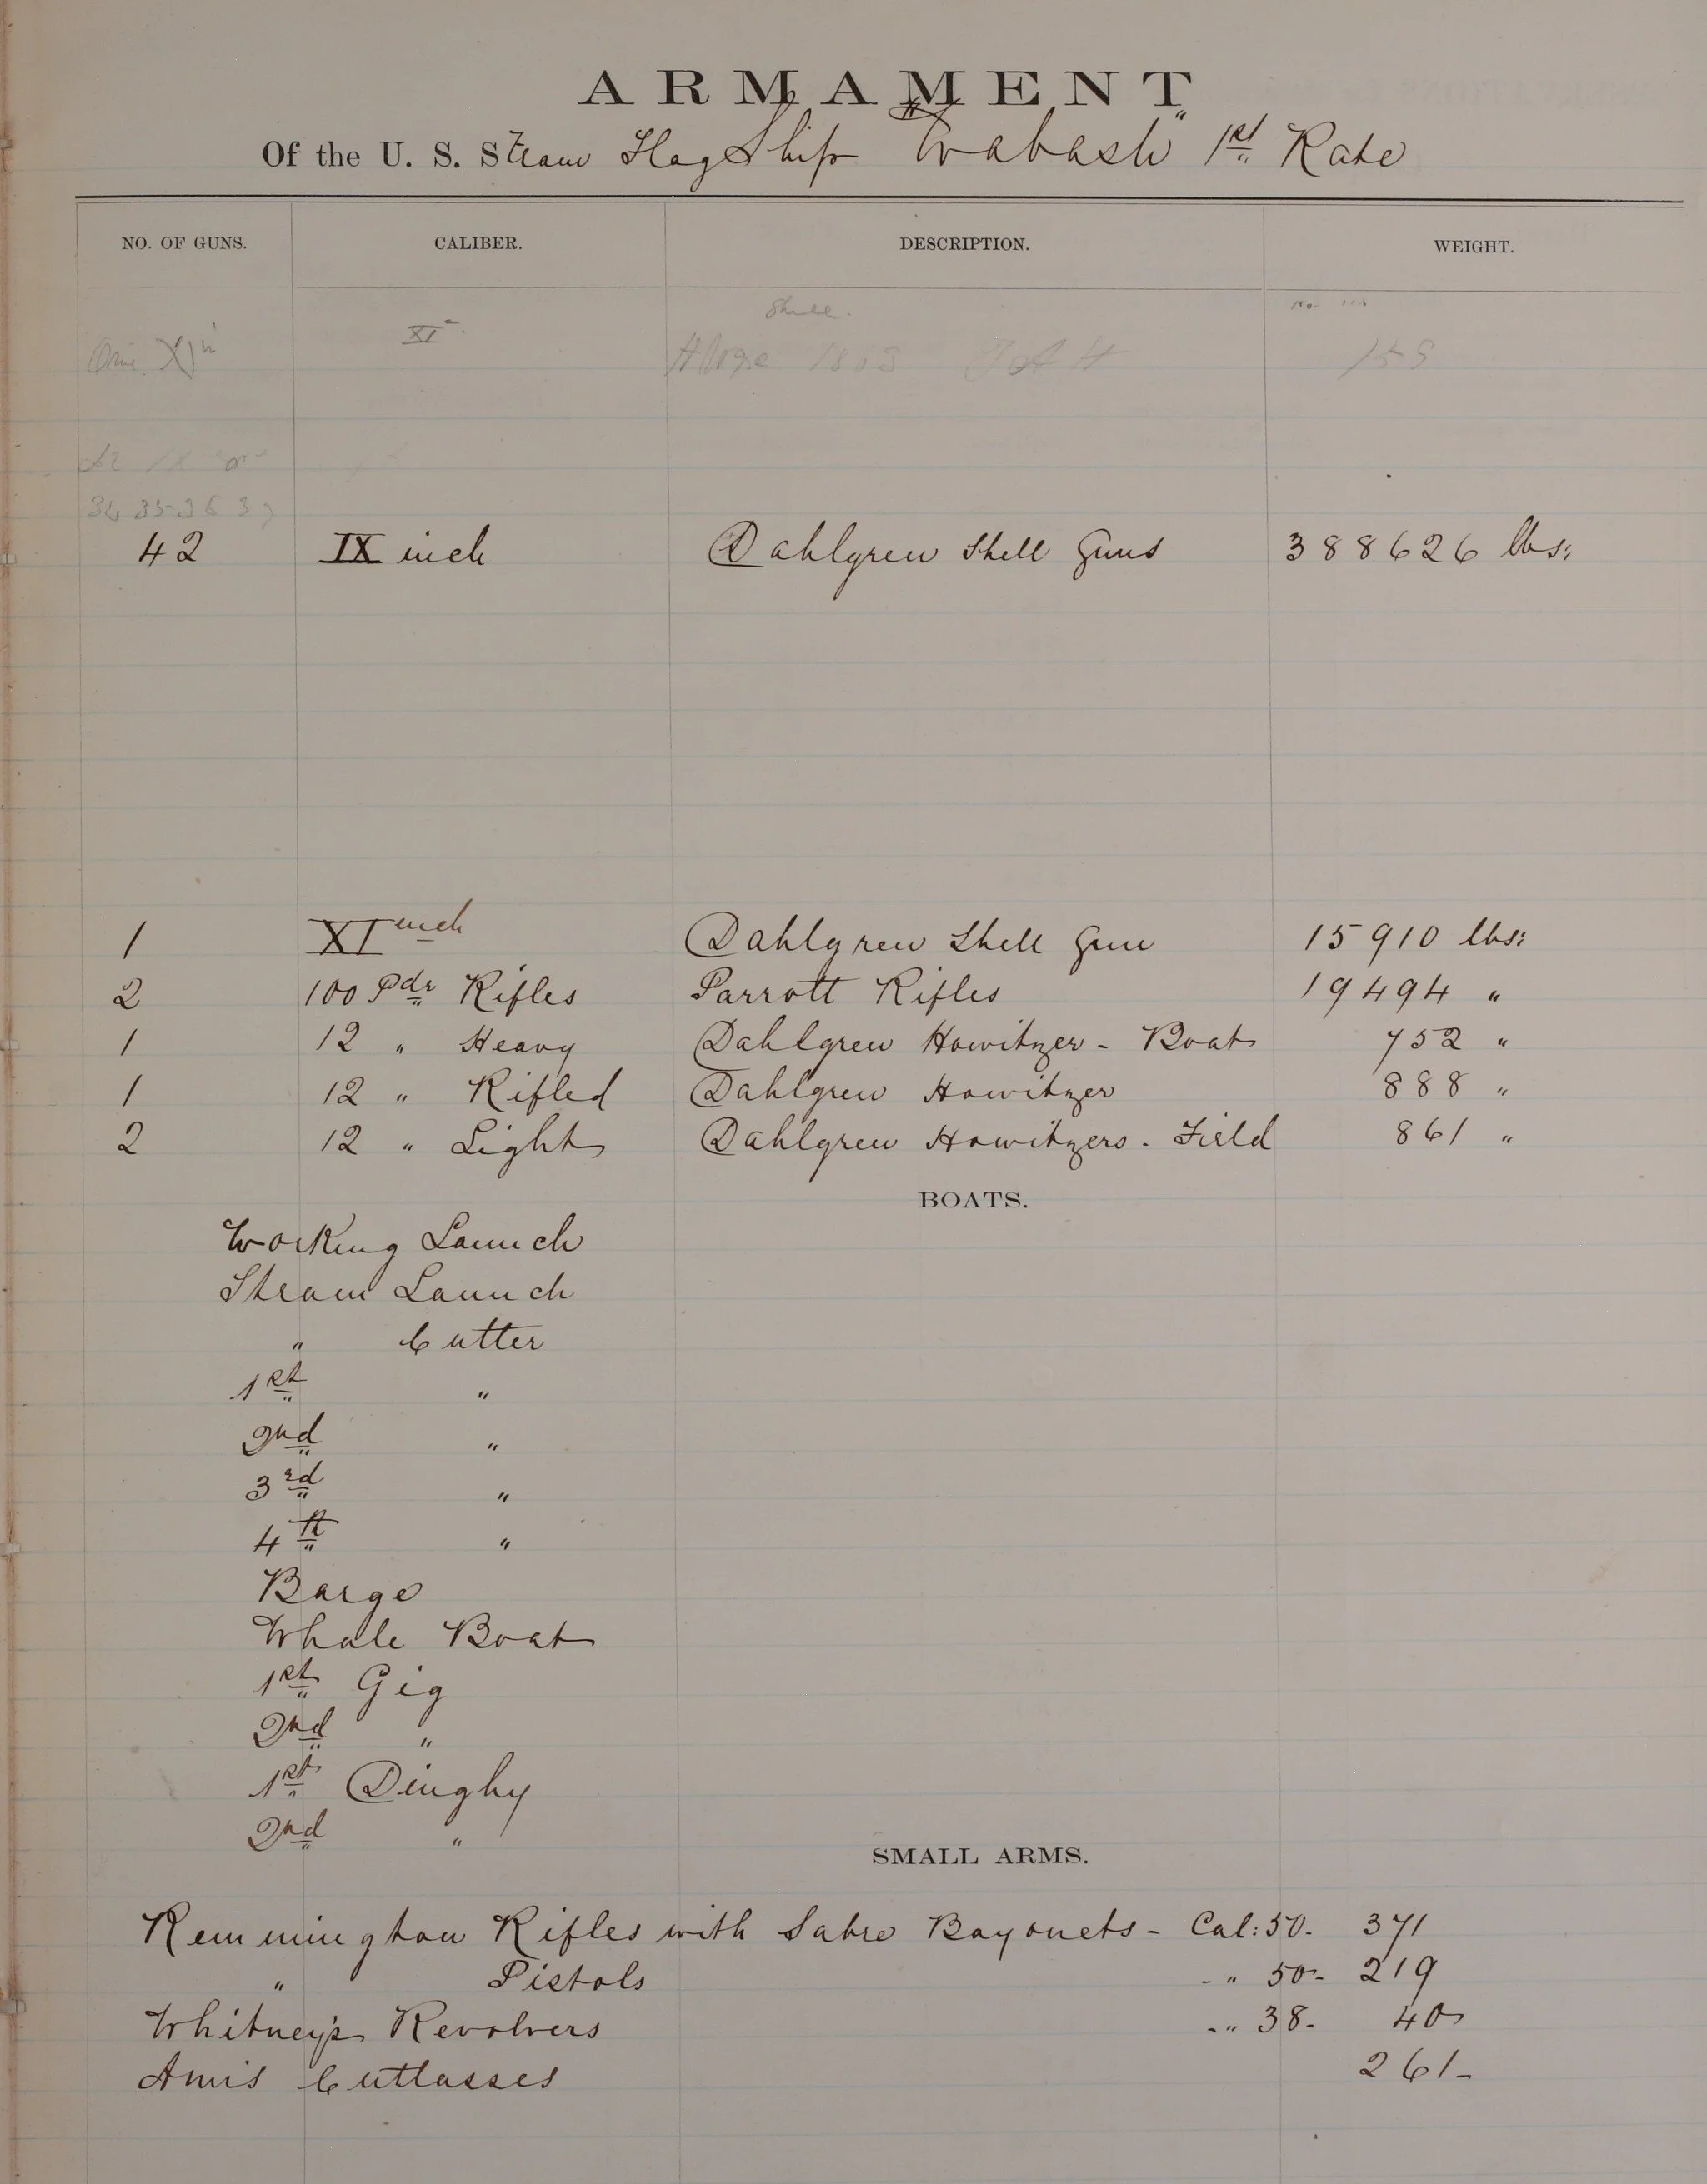 ARMAMENT
Of the U. S. Steam Flag Ship "Wabash" 1st Rate
NO. OF GUNS. CALIBER. DESCRIPTION. WEIGHT.
Shell.
One XI in XI 1863
42 IX inch Dahlgren Shell Guns 388626 lbs:
1 XI inch Dahlgren Shell Gun 15910 lbs:
2 100 Pdr Rifles Parrott Rifles 19494 "
1 12 " Heavy Dahlgren Howitzer - Boat 752 "
1 12 " Rifled Dahlgren Howitzer 888 "
2 12 " Light Dahlgren Howitzers - Field 861 "
BOATS.
Working Launch
Steam Launch
" Cutter
1st "
2nd "
3rd "
4th "
Barge
Whale Boat
1st Gig
2nd "
1st Dinghy
2nd "
SMALL ARMS.
Remmington Rifles with Sabre Bayonets - Cal: 50. 371
" Pistols - " 50 - 219
Whitney's Revolvers - " 38 - 40
Ames Cutlasses 261 -